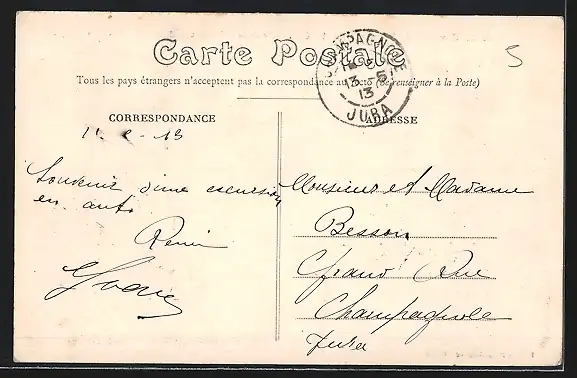 Carte Postale
5
Tous les pays étrangers n'acceptent pas la correspondance au recto (Se renseigner à la Poste)
CHAMPAGNOLE
13 -5
13
JURA
CORRESPONDANCE
ADRESSE
Souvenir d'une excursion
en auto
Monsieur et Madame
Besson
Grand Rue
Champagnole
Jura